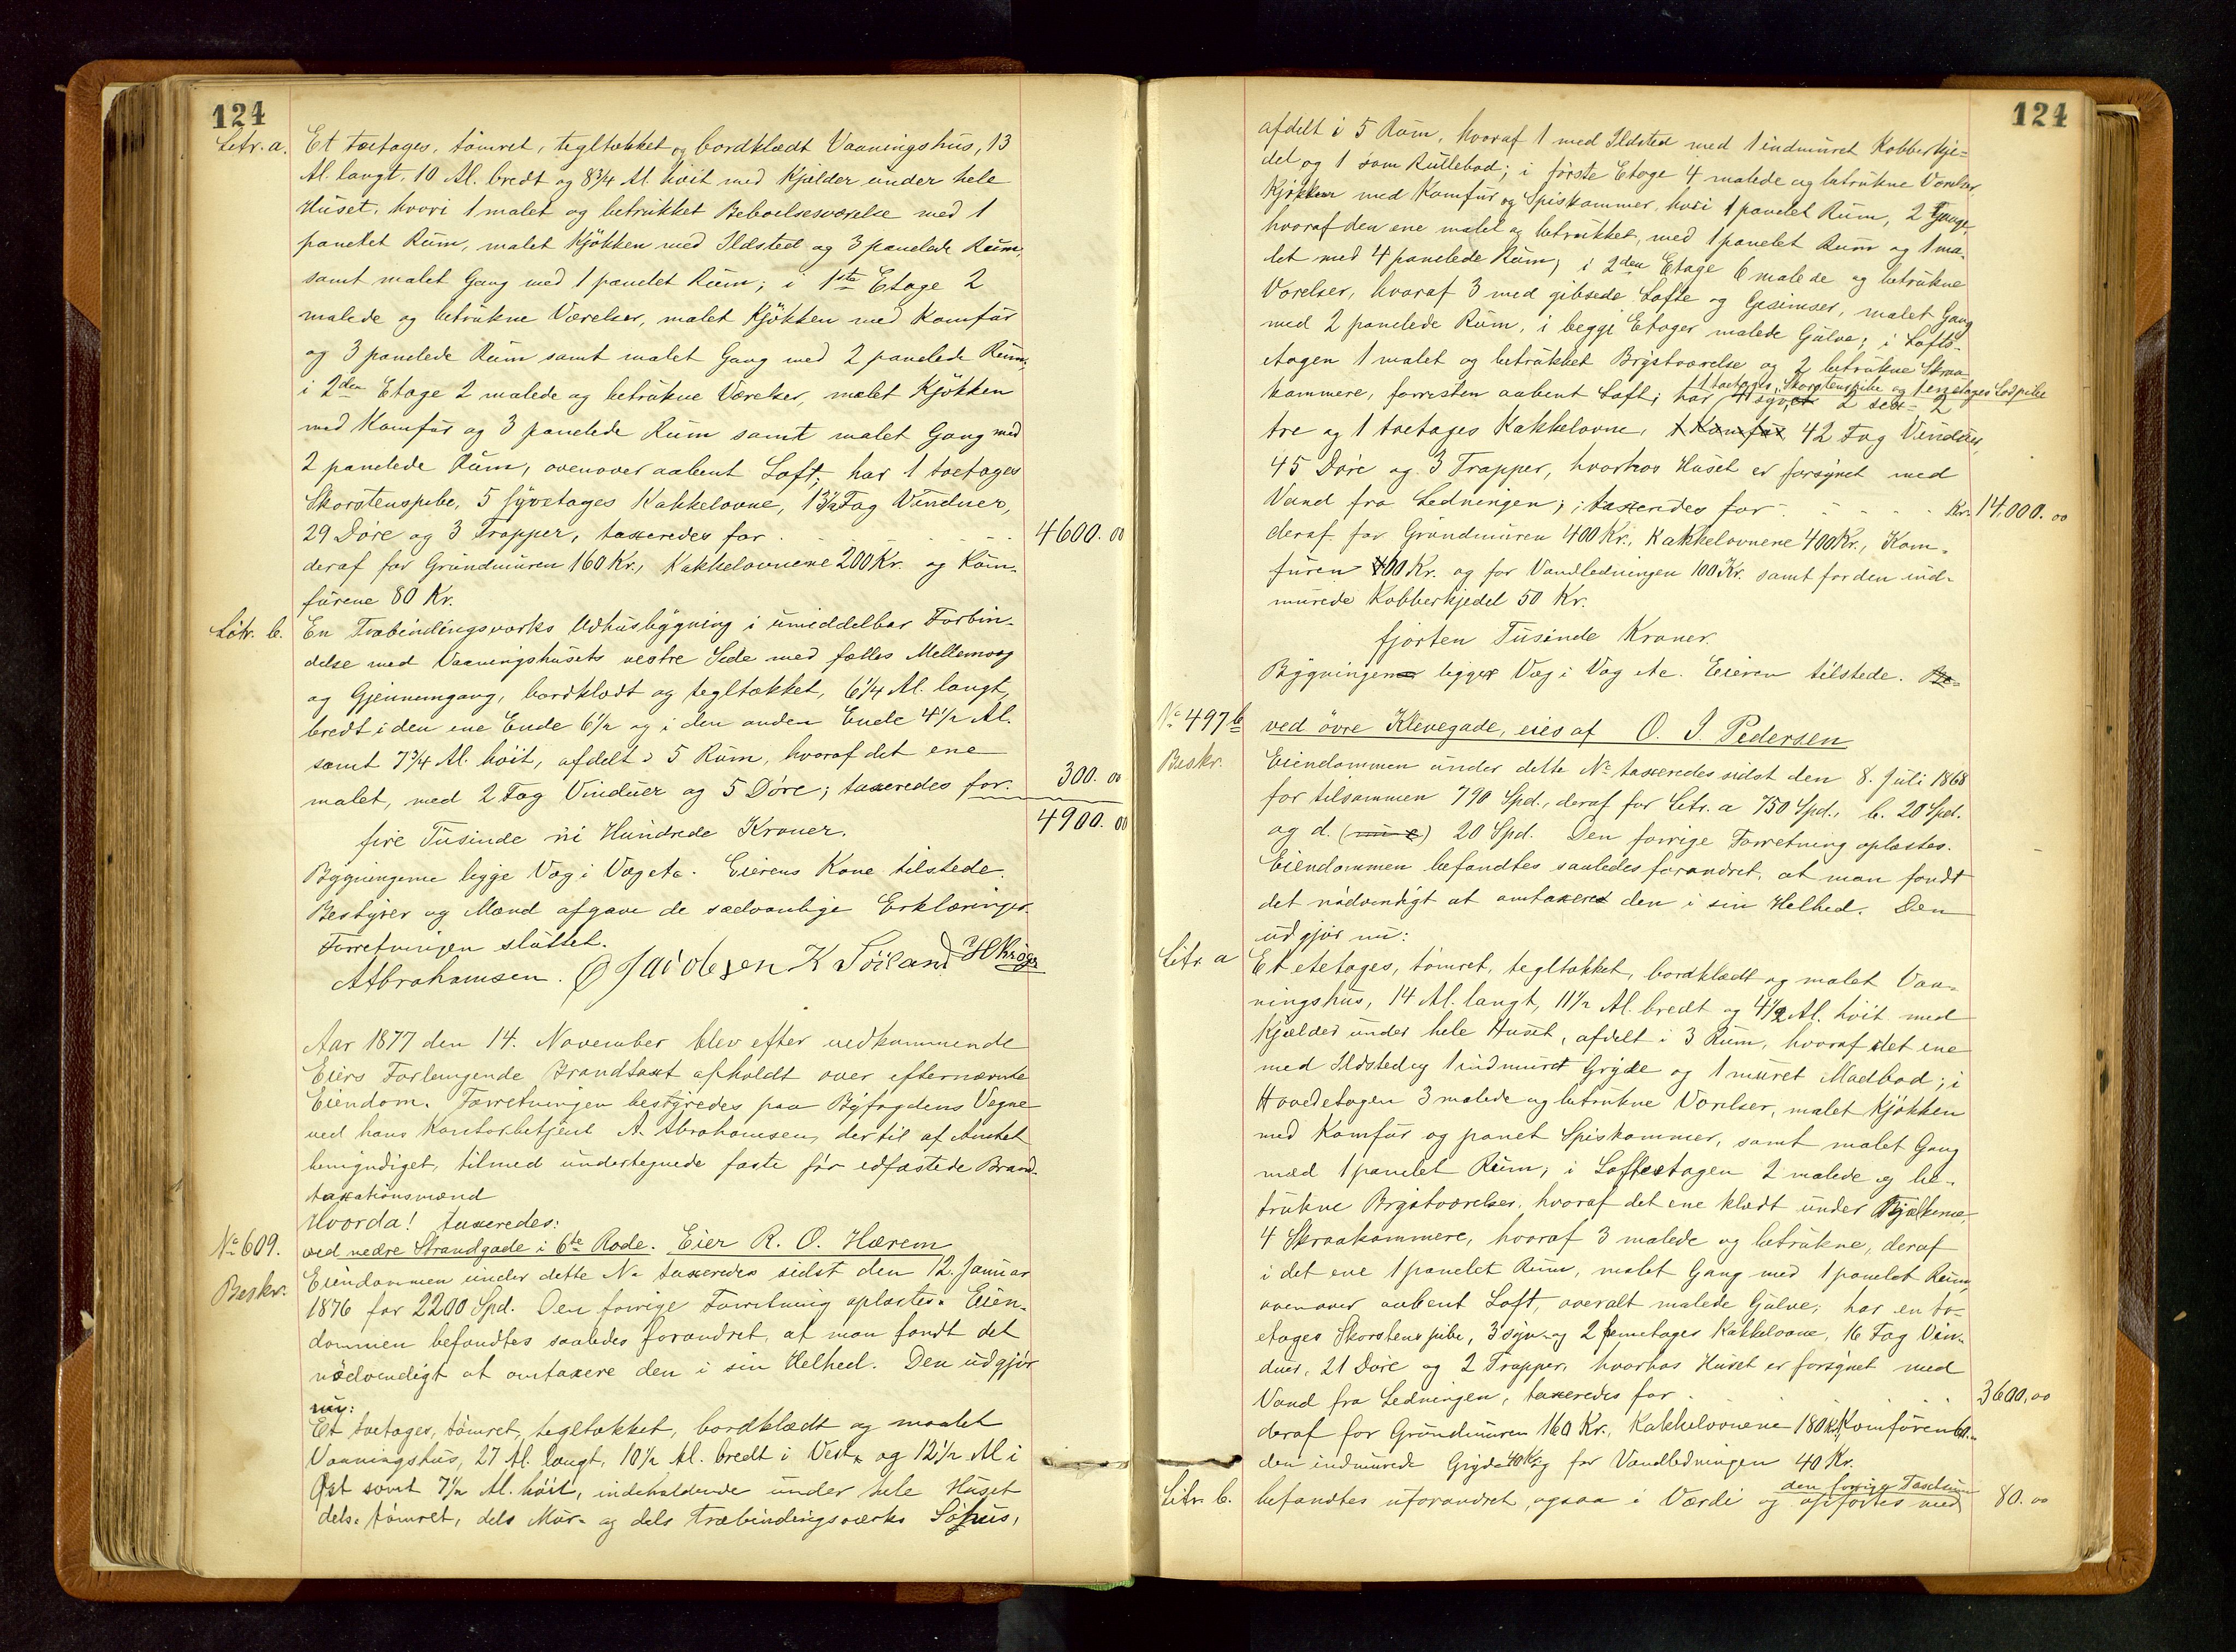 124
Litr. a. Et toetages, tömret, tegltækket og bordklædt Vaaningshus, 13
Al. langt, 10 Al. bredt og 8 3/4 Al. höit med Kjælder under hele
Huset, hvori 1 malet og betrukket Beboelsesværelse med 1
panelet Rum, malet Kjökken med Ildsted og 3 panelede Rum,
samt malet Gang med 1 panelet Rum; i 1ste Etage 2
malede og betrukne Værelser, malet Kjökken med Komfur
og 3 panelede Rum samt malet Gang med 2 panelede Rum;
i 2den Etage 2 malede og betrukne Værelser, malet Kjökken
med Komfur og 3 panelede Rum samt malet Gang med
2 panelede Rum, ovenover aabent Loft; har 1 toetages
Skorstenspibe, 5 syvetages Kakkelovne, 13 1/2 Fag Vinduer,
29 Döre og 3 Trapper, taxeredes for 4600.00
deraf for Grundmuren 160 Kr., Kakkelovnene 200 Kr. og Kom-
furene 80 Kr.
Litr. b. En Træbindingsværks Udhusbygning i umiddelbar Forbin-
delse med Vaaningshusets vestre Side med fælles Mellemvæg
og Gjennemgang, bordklædt og tegltækket, 6 1/4 Al. langt,
bredt i den ene Ende 6 1/2 og i den anden Ende 4 1/2 Al.
samt 7 3/4 Al. höit, afdelt i 5 Rum, hvoraf det ene
malet, med 2 Fag Vinduer og 5 Döre; taxeredes for. 300.00
4900.00
fire Tusinde ni Hundrede Kroner.
Bygningerne ligge Væg i Væg etc. Eierens Kone tilstede.
Bestyrer og Mænd afgave de sædvanlige Erklæringer.
Forretningen sluttet.
A Abrahamsen. O Jacobsen K Söiland H Kröger
Aar 1877 den 14. November blev efter vedkommende
Eiers Forlangende Brandtaxt afholdt over efternævnte
Eiendom. Forretningen bestyredes paa Byfogdens Vegne
ved hans Kontorbetjent A. Abrahamsen, dertil af Amtet
bemyndiget, tilmed undertegnede faste för edfæstede Brand-
taxationsmænd
Hvorda! taxeredes:
No 609. ved nedre Strandgade i 6te Rode. Eier R. O. Hærem
Beskr. Eiendommen under dette No taxeredes sidst den 12. Januar
1876 for 2200 Spd. Den forrige Forretning oplæstes. Eien-
dommen befandtes saaledes forandret, at man fandt det
nödvendigt at omtaxere den i sin Helhed. Den udgjör
nu:
Et toetages, tömret, tegltækket, bordklædt og maalet
Vaaningshus, 27 Al. langt, 10 1/2 Al. bredt i Vest og 12 1/2 Al i
Öst samt 7 1/2 Al. höit, indeholdende under hele Huset
dels tömret, dels Mur- og dels Træbindingsværks Söhus,
124
afdelt i 5 Rum, hvoraf 1 med Ildsted med 1 indmuret Kobberkje-
del og 1 som Rullebod; i förste Etage 4 malede og betrukne Værelser
Kjökken med Komfur og Spiskammer, hvori 1 panelet Rum, 2 Gange,
hvoraf den ene malet og betrukket, med 1 panelet Rum og 1 ma-
let med 4 panelede Rum; i 2den Etage 6 malede og betrukne
Værelser, hvoraf 3 med gibsede Lofte og Gesimser, malet Gang
med 2 panelede Rum, i begge Etager malede Gulve; i Lofts-
etagen 1 malet og betrukket Brystværelse og 2 betrukne Skraa-
1 toetages Skorstenspibe og 1 enetages Lodpibe
kammere, forresten aabent Loft; har 4 syv, 2 sex- 2
tre og 1 toetages Kakkelovne, 1 Komfur 42 Fag Vinduer,
45 Döre og 3 Trapper, hvorhos Huset er forsynet med
Vand fra Ledningen; taxeredes for Kr. 14,000.00
deraf for Grundmuren 400 Kr., Kakkelovnene 400 Kr., Kom-
furen 100 Kr. og for Vandledningen 100 Kr. samt for den ind-
murede Kobberkjedel 50 Kr.
fjorten Tusinde Kroner
Bygningen ligger Væg i Væg etc. Eieren tilstede. Be-
No 497b ved övre Klevegade, eies af O. J. Pedersen
Beskr. Eiendommen under dette No taxeredes sidst den 8. Juli 1868
for tilsammen 790 Spd., deraf for Litr. a 750 Spd., b. 20 Spd.
og d. (nu c) 20 Spd. Den forrige Forretning oplæstes.
Eiendommen befandtes saaledes forandret, at man fandt
det nödvendigt at omtaxere den i sin Helhed. Den
udgjör nu:
Litr. a Et etetages, tömret, tegltækket, bordklædt og malet Vaa-
ningshus, 14 Al. langt, 11 1/2 Al. bredt og 4 1/2 Al. höit med
Kjælder under hele Huset, afdelt i 3 Rum, hvoraf det ene
med Ildsted og 1 indmuret Gryde og 1 muret Madbod; i
Hovedetagen 3 malede og betrukne Værelser, malet Kjökken
med Komfur og panelt Spiskammer, samt malet Gang
med 1 panelet Rum; i Loftsetagen 2 malede og be-
trukne Brystværelser, hvoraf det ene klædt under Bjælkerne,
4 Skraakammere, hvoraf 3 malede og betrukne, deraf
i det ene 1 panelet Rum, malet Gang med 1 panelet Rum,
ovenover aabent Loft, overalt malede Gulve; har en to-
etages Skorstenspibe, 3 syv- og 2 femetages Kakkelovne, 16 Fag Vin-
duer, 21 Döre og 2 Trapper, hvorhos Huset er forsynet med
Vand fra Ledningen, taxeredes for 3600.00
deraf for Grundmuren 160 Kr., Kakkelovnene 180 Kr, Komfuren 60.
den indmurede Gryde 40 Kr og for Vandledningen 40 Kr.
den forrige Taxtsum
Litr. b. befandtes uforandret, ogsaa i Værdi og opförtes med 80.00